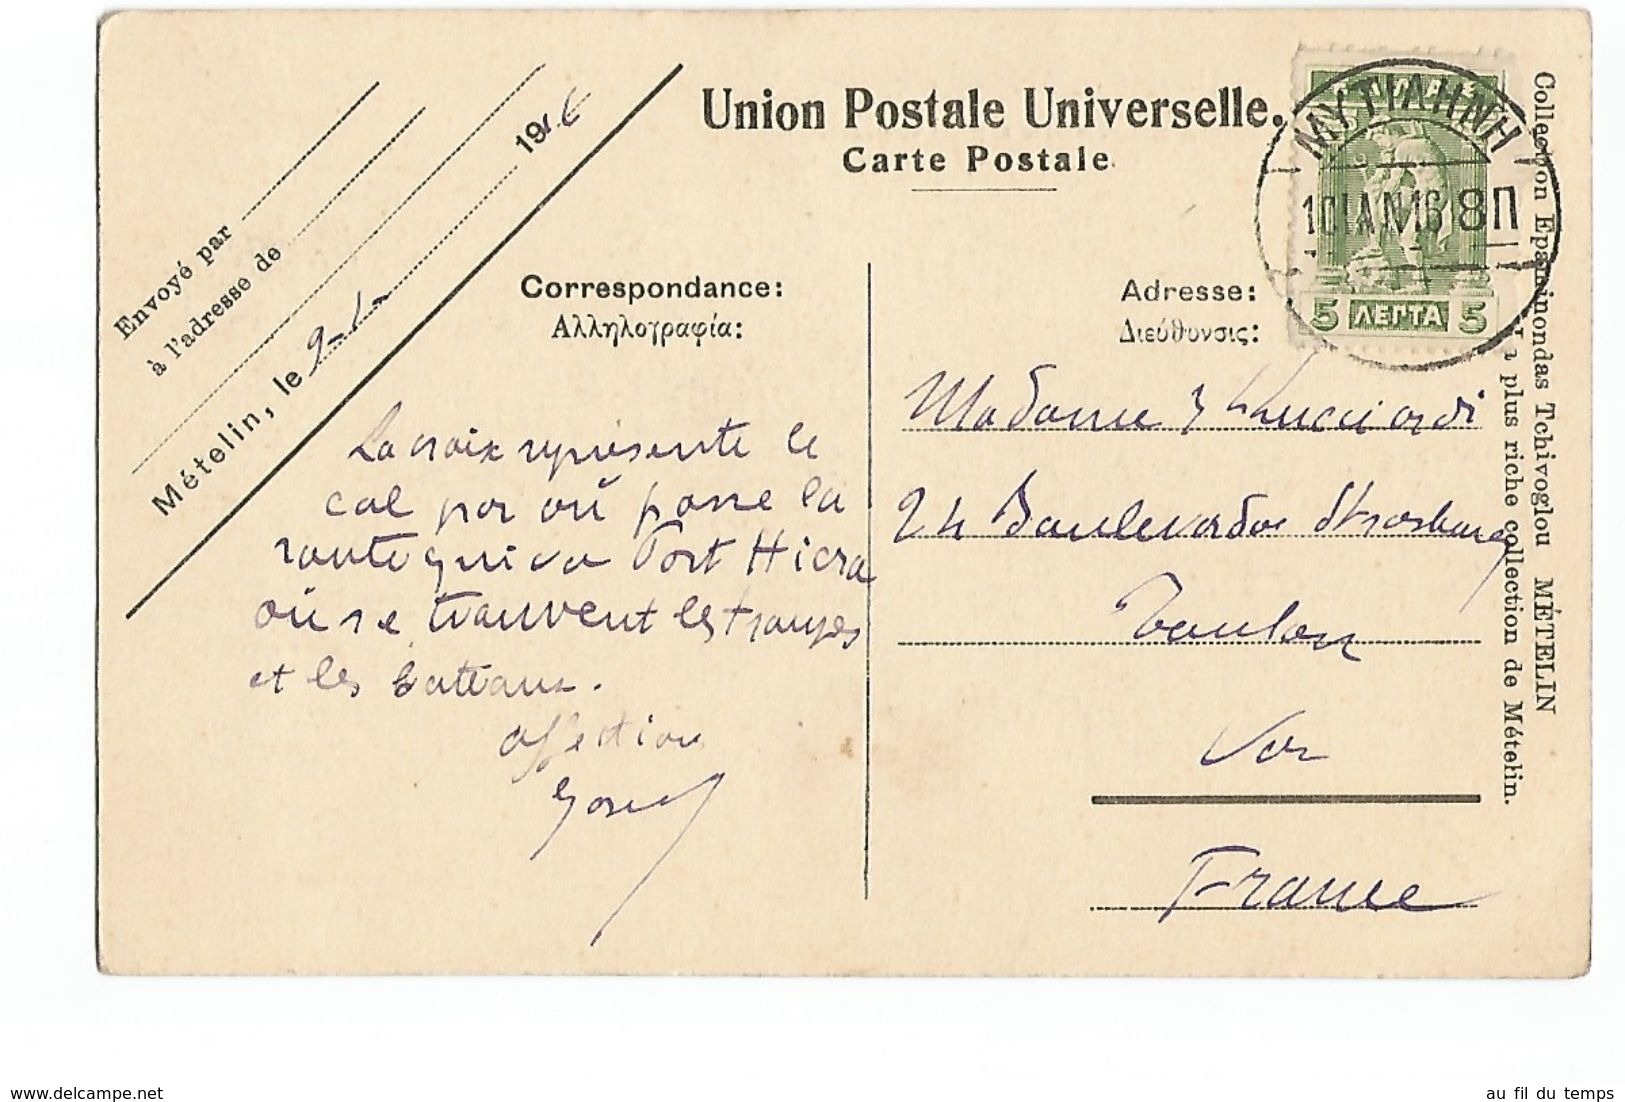 Union Postale Universelle.
Carte Postale
Envoyé par
à l'adresse de
Mételin, le 9-1- 1916
Correspondance:
Αλληλογραφία:
La croix représente le
col par où passe la
route qui va Port Hiera
où se trouvent les troupes
et les bateaux.
affection
Adresse:
Διεύθυνσις:
Madame
24 Boulevard de Strasbourg
Toulon
Var
France
ΜΥΤΙΛΗΝΗ
10 ΙΑΝ 16 8Π
5 ΛΕΠΤΑ 5
Collection Epaminondas Tchivoglou MÉTELIN
La plus riche collection de Mételin.
delcampe.net
au fil du temps